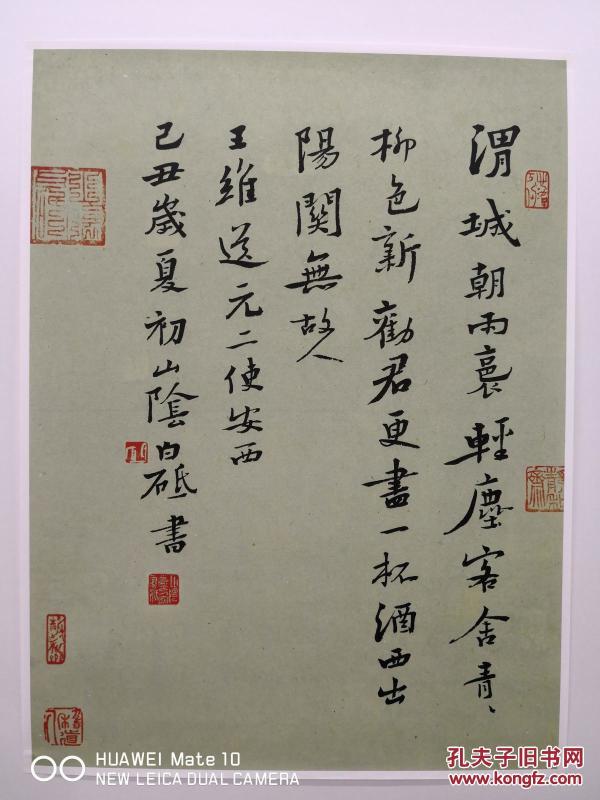 渭城朝雨裛輕塵客舍青〻
柳色新勸君更盡一杯酒西出
陽關無故人
王維送元二使安西
己丑歲夏初山陰白砥書
HUAWEI Mate 10
NEW LEICA DUAL CAMERA
孔夫子旧书网
www.kongfz.com